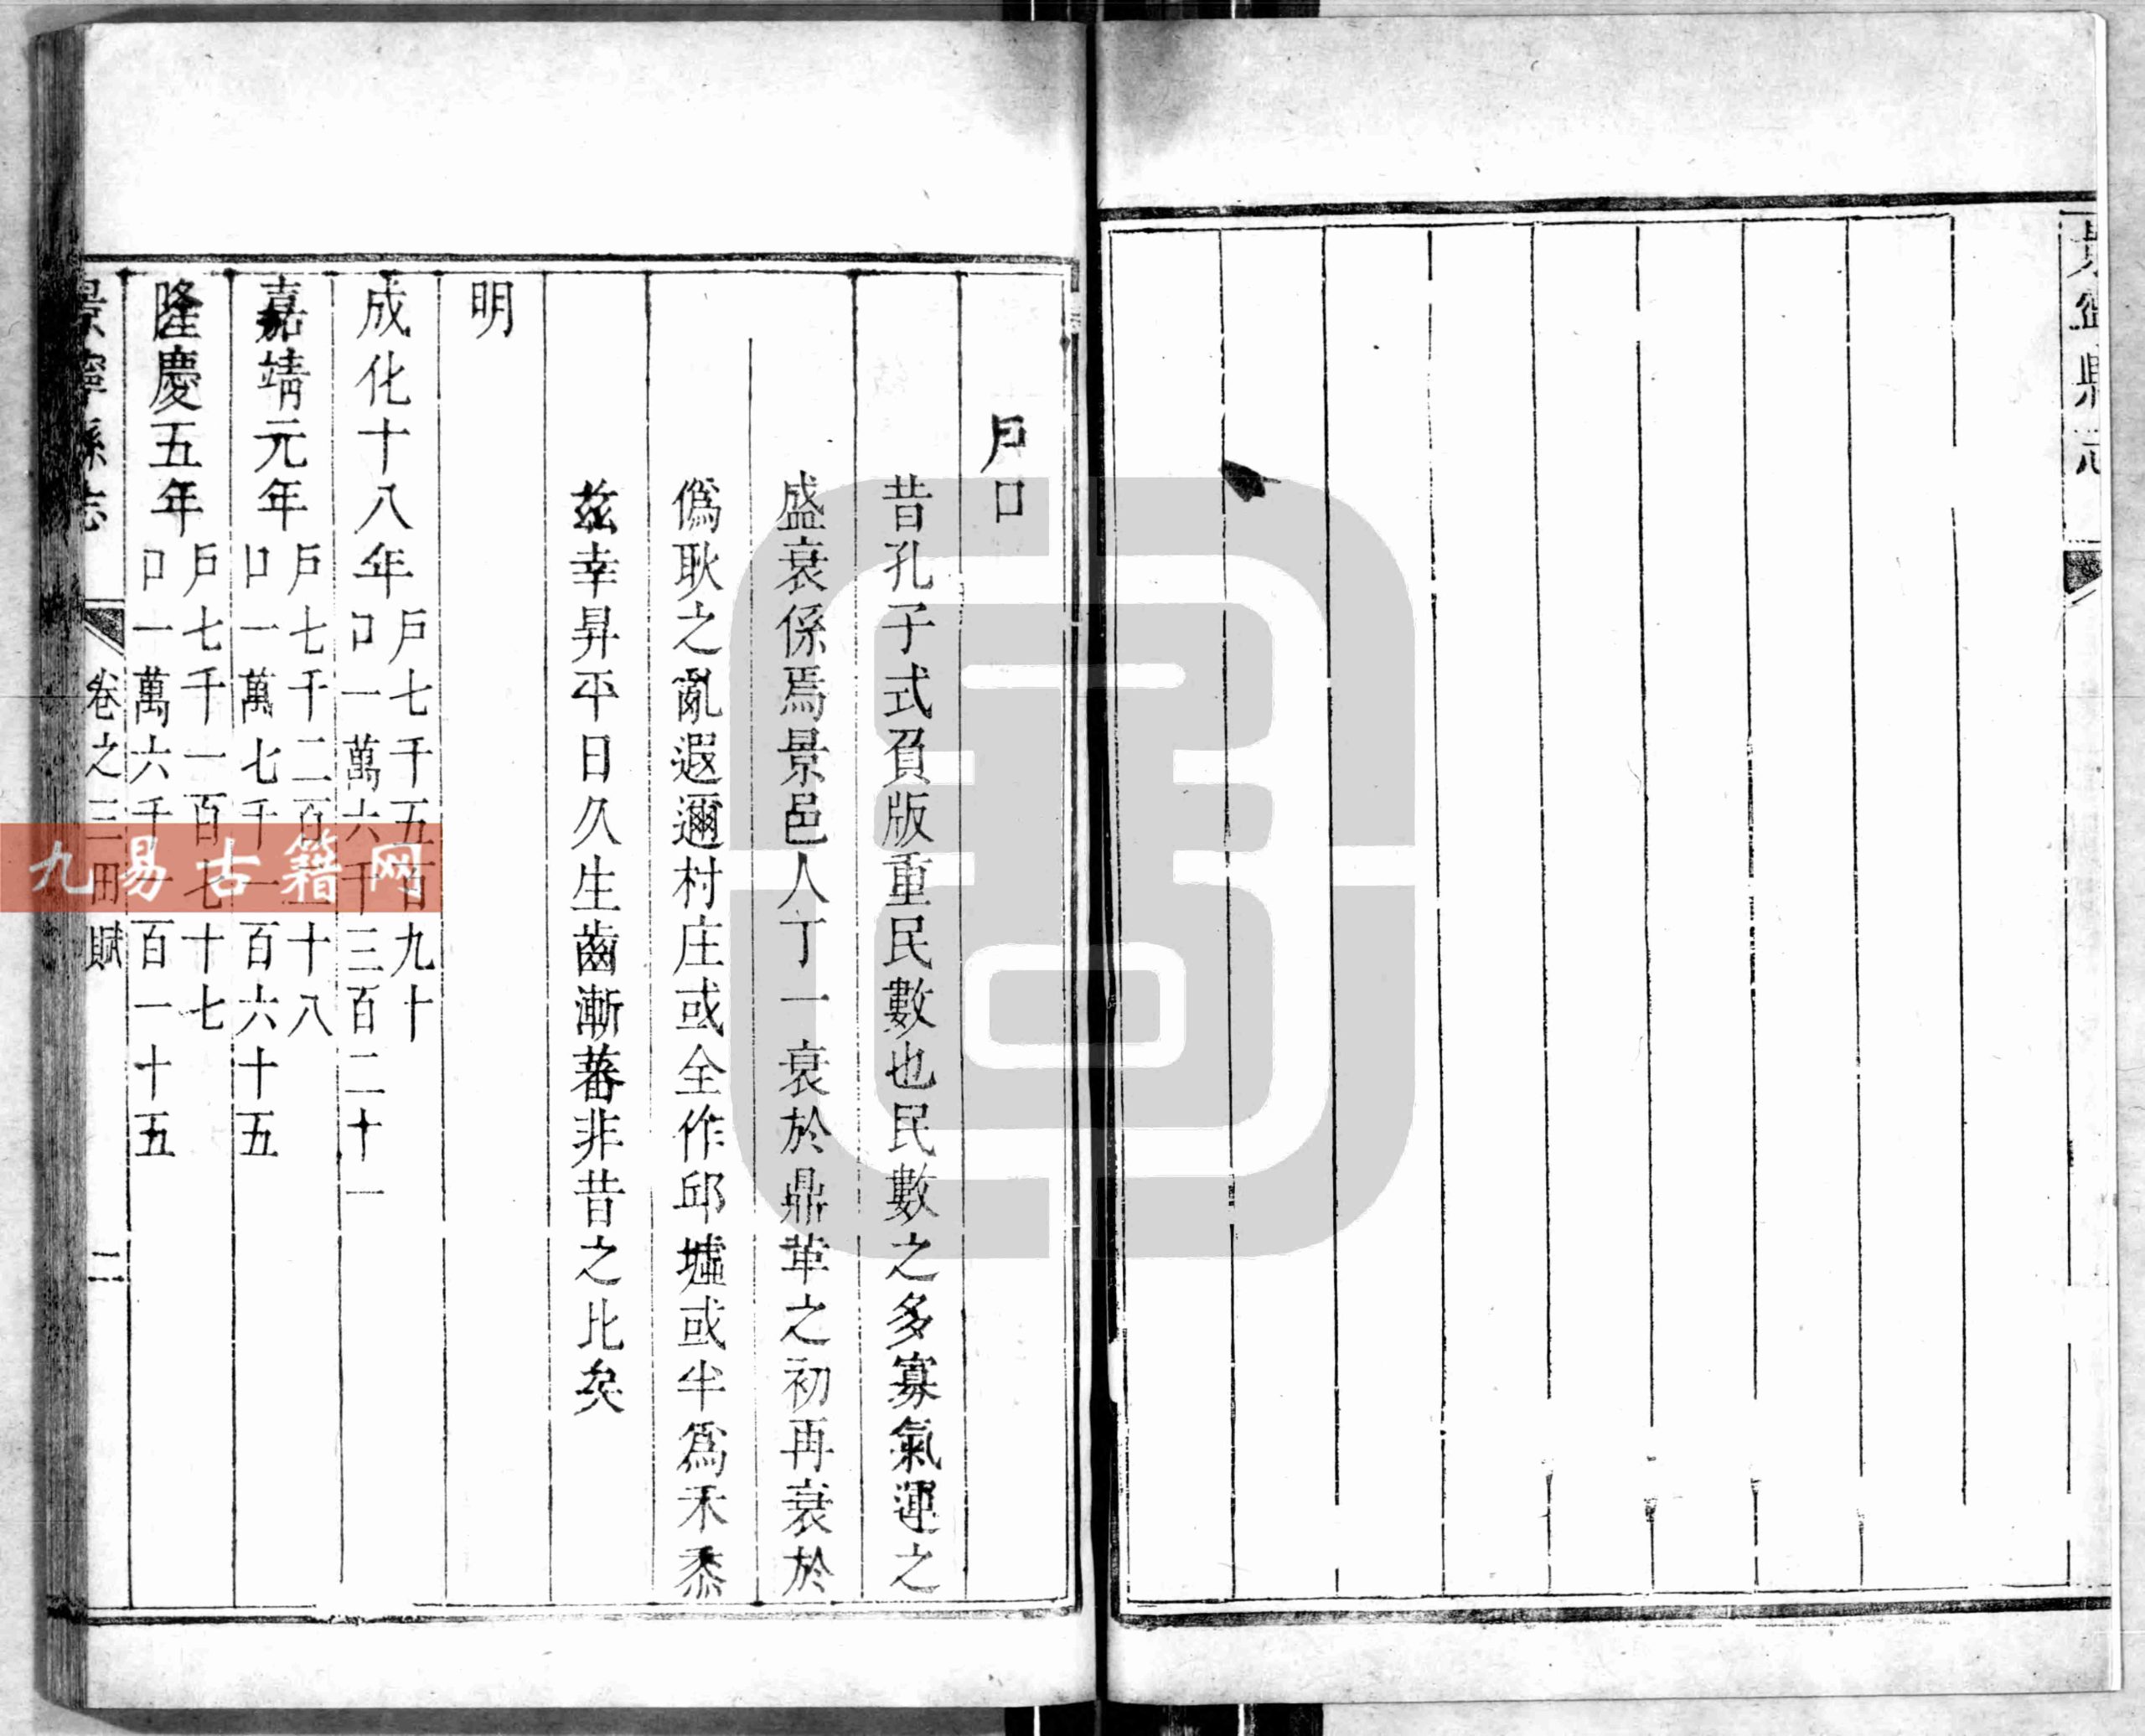 景寧縣志
户口
昔孔子式負版重民數也民數之多寡氣運之
盛衰係焉景邑人丁一衰於鼎革之初再衰於
僞耿之亂遐邇村庄或全作邱墟或半爲禾黍
兹幸昇平日久生齒漸蕃非昔之比矣
明
成化十八年户七千五百九十
口一萬六千三百二十一
嘉靖元年户七千二百二十八
口一萬七千一百六十五
隆慶五年户七千一百七十七
口一萬六千一百一十五
景寧縣志 卷之三田賦 二
九易古籍网